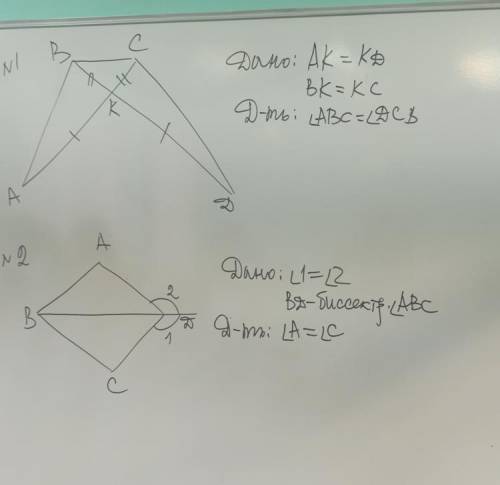 №1
B C
K
A D
Дано: AK = KD
BK = KC
Д-ть: ∠ABC = ∠DCB
№2
A
B 2 D
1
C
Дано: ∠1 = ∠2
BD - биссектр. ∠ABC
Д-ть: ∠A = ∠C